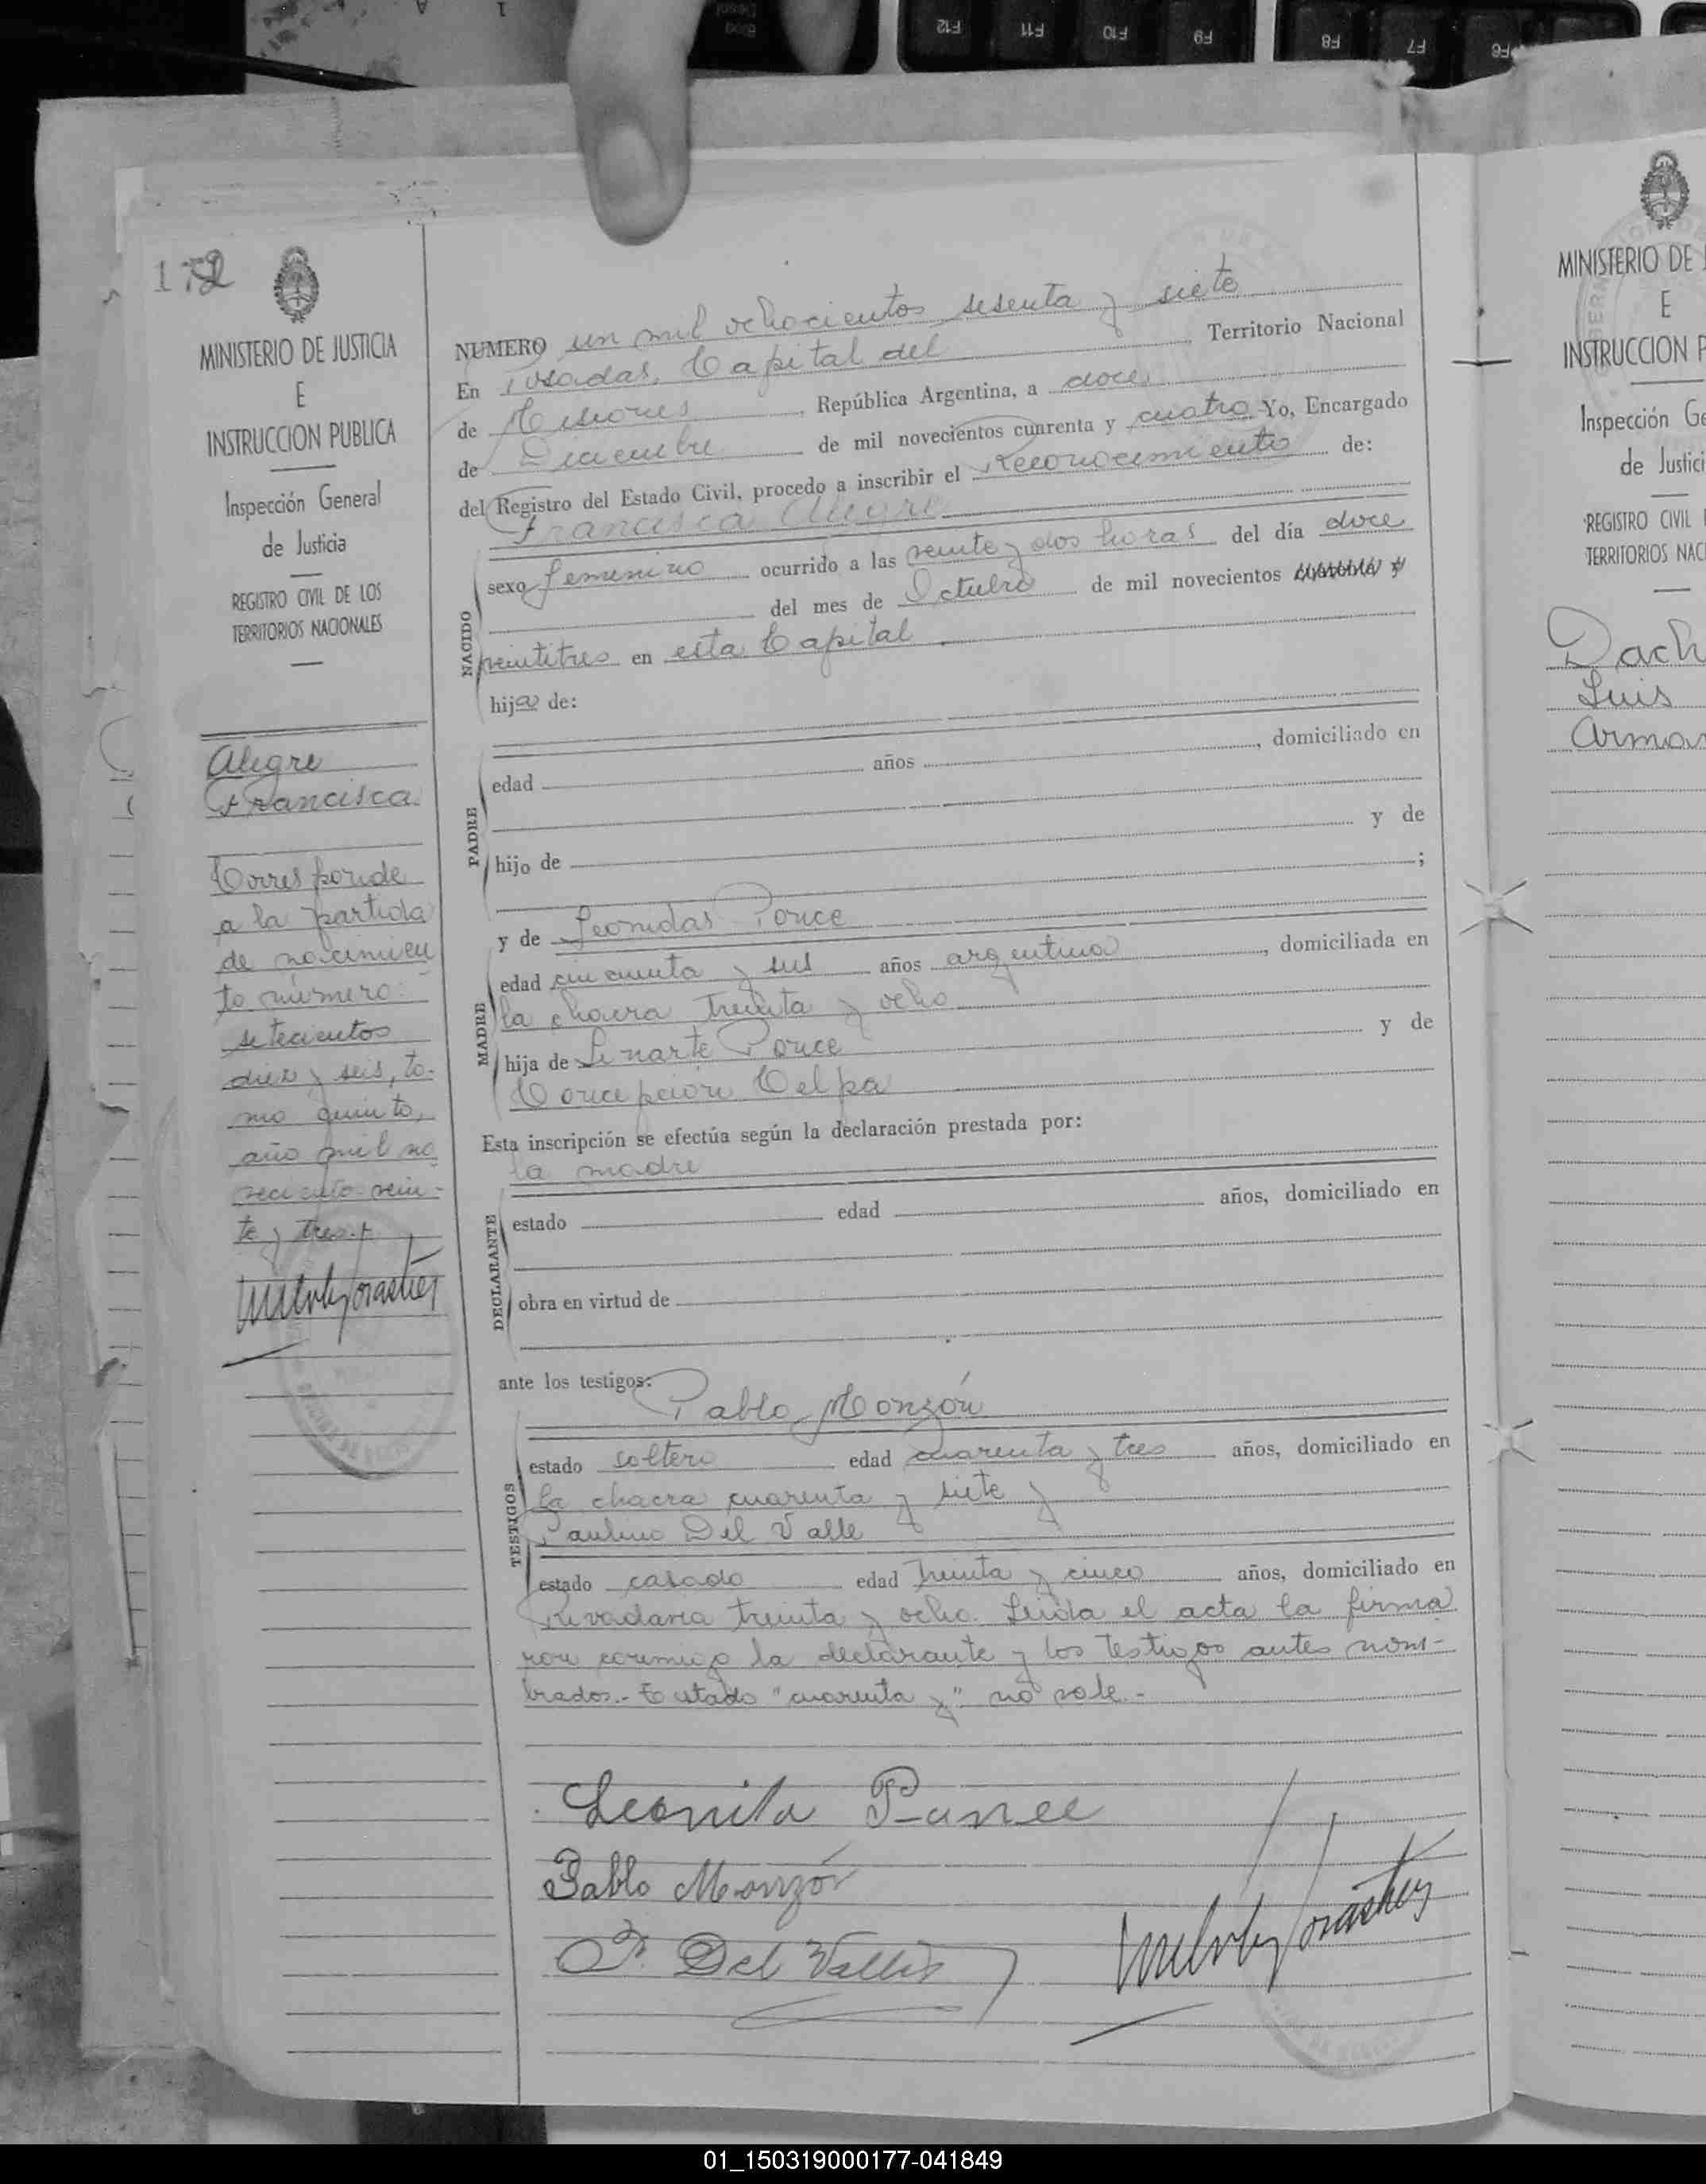 F12 F11 F10 F9 F8 F7 F6
172
MINISTERIO DE JUSTICIA
E
INSTRUCCION PUBLICA
Inspección General
de Justicia
REGISTRO CIVIL DE LOS
TERRITORIOS NACIONALES
Alegre
Francisca
Corresponde
a la partida
de nacimien
to número:
setecientos
diez y seis, to-
mo quinto,
año mil no
veciento vein-
te y tres.
NUMERO un mil ochocientos sesenta y siete
En Posadas, Capital del Territorio Nacional
de Misiones, República Argentina, a doce
de Diciembre de mil novecientos cuarenta y cuatro Yo, Encargado
del Registro del Estado Civil, procedo a inscribir el Reconocimiento de:
Francisca Alegre
sexo femenino ocurrido a las veinte y dos horas del día doce
del mes de Octubre de mil novecientos cuarenta y
NACIDO
veintitres en esta Capital.
hija de:
edad años, domiciliado en
PADRE
hijo de y de
;
y de Leonidas Ponce
edad cincuenta y seis años argentina, domiciliada en
la chacra treinta y ocho
MADRE
hija de Linarte Ponce y de
Concepcion Celpa
Esta inscripción se efectúa según la declaración prestada por:
la madre
estado edad años, domiciliado en
DECLARANTE
obra en virtud de
ante los testigos:
Pablo Monzón
estado soltero edad cuarenta y tres años, domiciliado en
la chacra cuarenta y siete y
TESTIGOS
Paulino Del Valle
estado casado edad treinta y cinco años, domiciliado en
Rivadavia treinta y ocho. Leida el acta la firma
ron conmigo la declarante y los testigos antes nom-
brados.- Testado "cuarenta y" no vale.-
Leonida Ponce
Pablo Monzón
P. Del Valle
MINISTERIO DE
E
INSTRUCCION P
Inspección Ge
de Justici
REGISTRO CIVIL
TERRITORIOS NAC
Dach
Luis
Arman
01_150319000177-041849